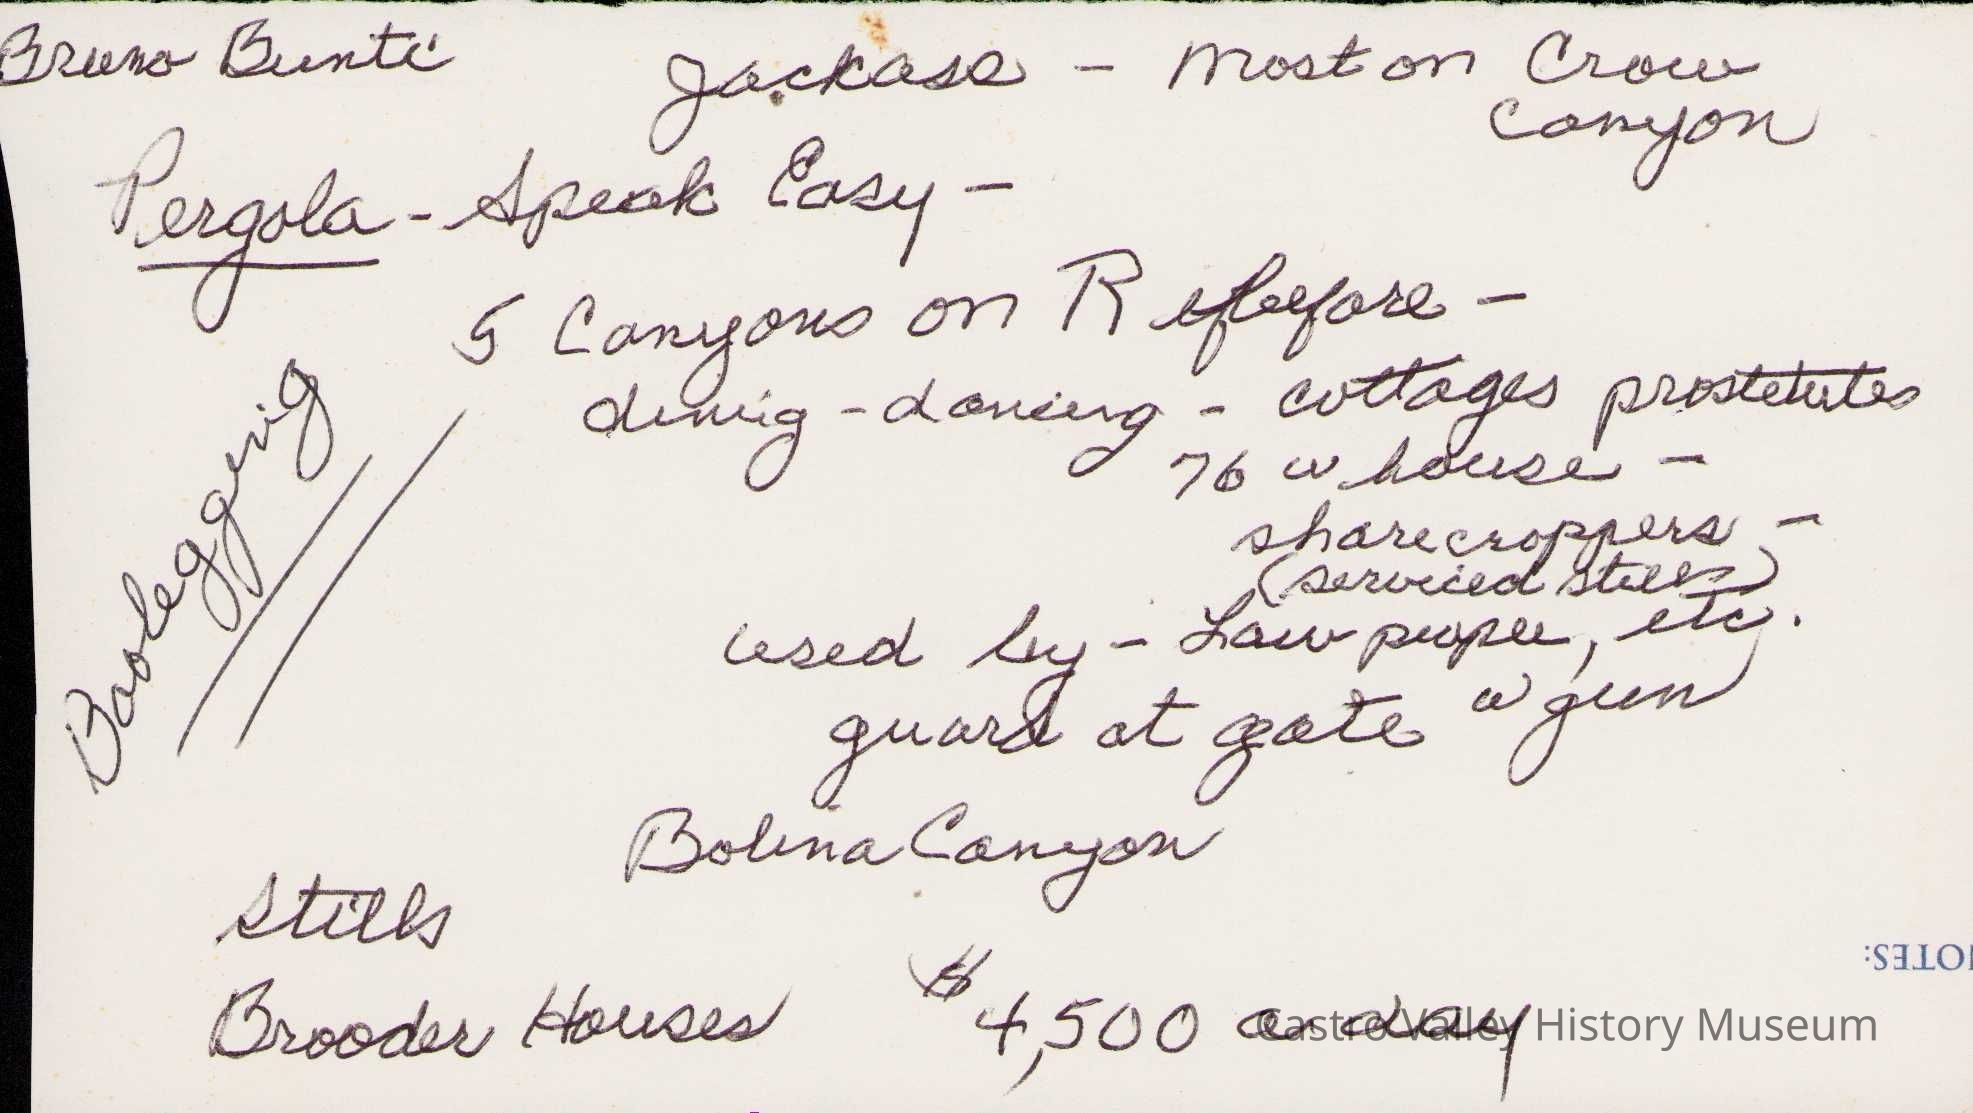 Bruno Bunti
Jackass - Most on Crow
Canyon
Pergola - Speak Easy -
5 Canyons on R before -
dinig - dancing - cottages prostetutes
76 w house -
sharecroppers -
(serviced stills)
used by - Law people, etc.
guard at gate w gun
Boolegging
Bolina Canyon
Stills
Brooder Houses $4,500 a day
NOTES:
Castro Valley History Museum